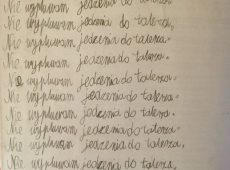 Nie wypluwam jedzenia do talerza.
Nie wypluwam jedzenia do talerza.
Nie wypluwam jedzenia do talerza.
Nie wypluwam jedzenia do talerza.
Nie wypluwam jedzenia do talerza.
Nie wypluwam jedzenia do talerza.
Nie wypluwam jedzenia do talerza.
Nie wypluwam jedzenia do talerza.
Nie wypluwam jedzenia do talerza.
Nie wypluwam jedzenia do talerza.